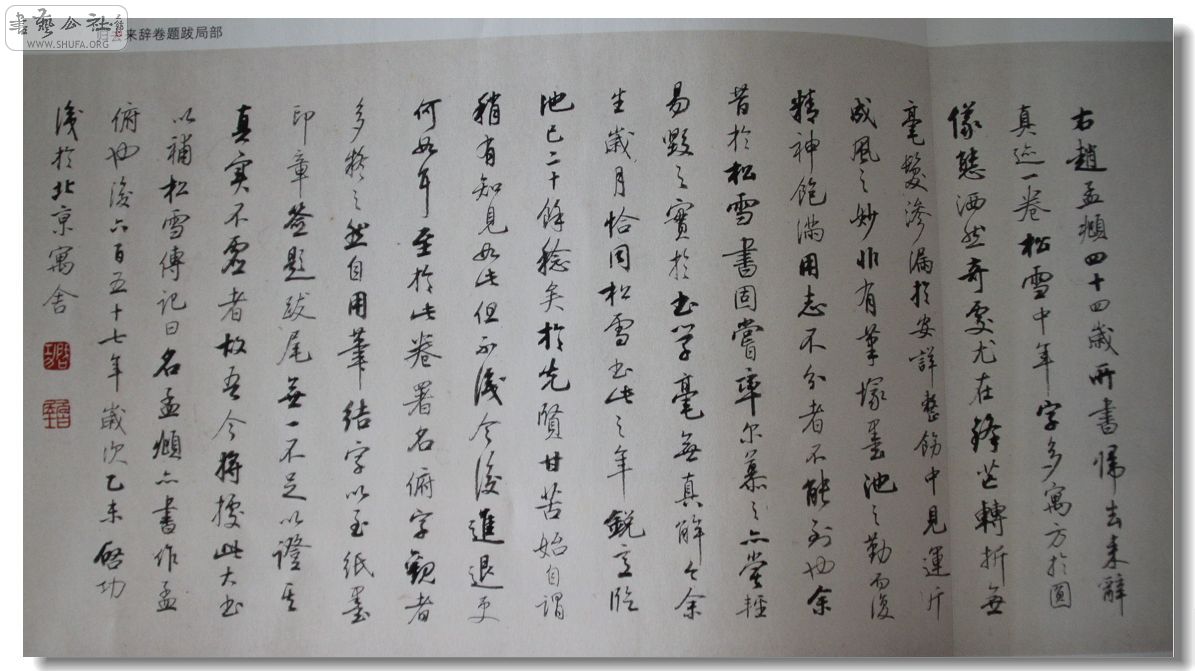 書藝公社
WWW.SHUFA.ORG
归去来辞卷题跋局部
右趙孟頫四十四歲所書歸去来辭
真迹一卷松雪中年字多寓方於圓
儀態洒然奇處尤在鋒芒轉折無
毫髮滲漏於安詳整飭中見運斤
成風之妙非有筆塚墨池之勤而復
精神飽滿用志不分者不能到也余
昔於松雪書固嘗率尔慕之亦嘗輕
易毀之實於書學毫無真解今余
生歲月恰同松雪書此之年銳意臨
池已二十餘稔矣於先賢甘苦始自謂
稍有知見如此但不識今後進退更
何如耳至於此卷署名俯字觀者
多疑之然自用筆結字以至紙墨
印章簽題跋尾無一不足以證其
真實不虛者故吾今將據此大書
以補松雪傳記曰名孟頫亦書作孟
俯也後六百五十七年歲次乙未啓功
識於北京寓舍